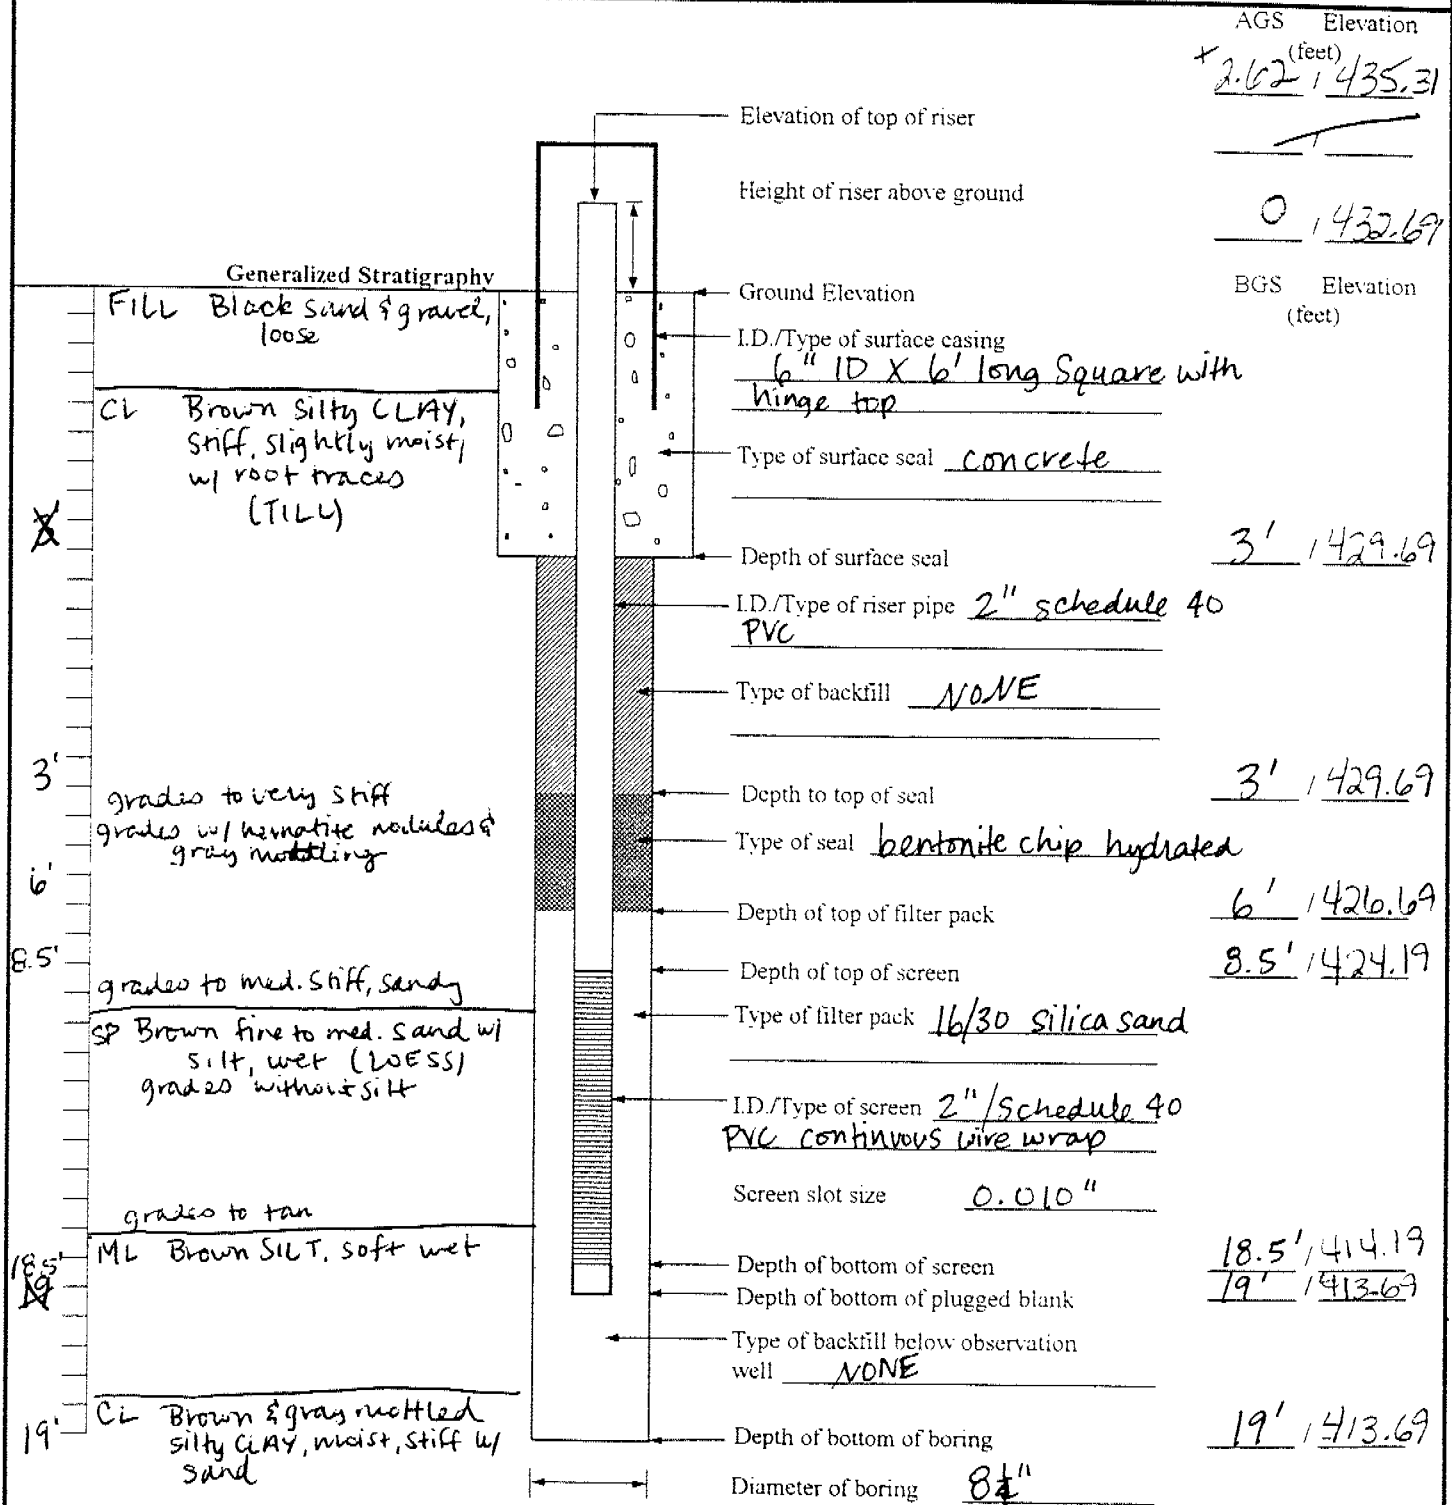 AGS Elevation
(feet)
+ 2.62 / 435.31
Elevation of top of riser
Height of riser above ground
0 / 432.69
Generalized Stratigraphy
Ground Elevation
BGS Elevation
(feet)
FILL Black sand & gravel,
loose
I.D./Type of surface casing
6" ID X 6' long Square with
hinge top
CL Brown Silty CLAY,
Stiff, slightly moist,
w/ root traces
(TILL)
Type of surface seal concrete
Depth of surface seal 3' / 429.69
I.D./Type of riser pipe 2" schedule 40
PVC
Type of backfill NONE
3'
Depth to top of seal 3' / 429.69
grades to very stiff
grades w/ hematite nodules &
gray mottling
Type of seal bentonite chip hydrated
6'
Depth of top of filter pack 6' / 426.69
8.5'
Depth of top of screen 8.5' / 424.19
grades to med. stiff, sandy
SP Brown fine to med. sand w/
silt, wet (LOESS)
grades without silt
Type of filter pack 16/30 silica sand
I.D./Type of screen 2"/Schedule 40
PVC continuous wire wrap
Screen slot size 0.010"
grades to tan
ML Brown SILT, soft wet
18.5'
Depth of bottom of screen 18.5' / 414.19
Depth of bottom of plugged blank 19' / 413.69
Type of backfill below observation
well NONE
CL Brown & gray mottled
silty CLAY, moist, stiff w/
sand
19'
Depth of bottom of boring 19' / 413.69
Diameter of boring 8¼"